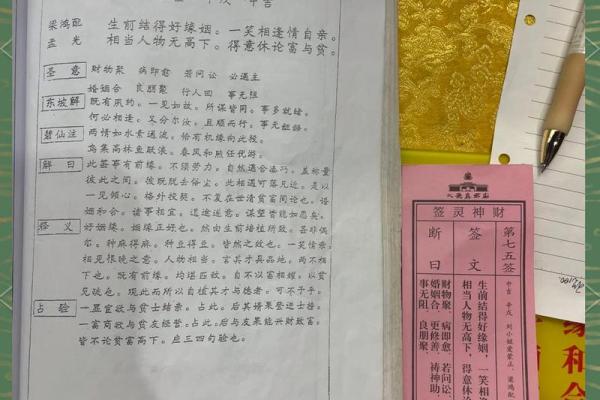 中吉
梁鸿配
孟光
生前结得好缘姻。一笑相逢情自亲。
相当人物无高下。得意休论富与贫。
圣意
财物聚 病即愈 若问讼 必遇主
婚姻合 良朋聚 行人回 事无阻
东坡解
既有夙约。一见如故。所谋皆同。事多就绪。
何必相连。又分尔汝。且顺而行。事无龃龉。
碧仙注
两情如水意通流。恰有机缘向此投。
鸟集高林鱼跃浪。春风和煦任优游。
解曰
此甚事有前缘。不须劳力。自然遇合凑巧。盖称量
彼此之间。彼既脱去俗尘。此相遇可落凡迹。是以
一见倾心。格外投契。不复在世清贫富间论也。婚
姻和合。诸事相宜。逍遥适意。谋望皆能如愿矣。
释义
好姻缘。姻缘正好也。然由生前培植所致。甚非偶
尔。种麻得麻。种豆得豆。皆然之故也。一笑情亲。
相见恨晚之意。人物相当。言其才具品地。两不相
下也。既有前缘。均堪匹敌。自不以富相嫌。以贫
见疏也。现此而所以自植其才与德者。可不予乎。
占验
一显宦欲与贫士结亲。占此。后其婿果登进士榜。
一富商欲与贫友经营。占此。后与友果能开财致富。
皆不论贫富高下。应三四句验也。
财神灵签
第七五签
签文
断曰
中吉 辛戊 刘小姐爱蒙正、梁鸿配
生前结得好缘姻，一笑相逢
相当人物无高下，得意休
财物聚 病即愈 若问讼
婚姻合 更修善 祷神助
事无阻 良朋聚
缘和合